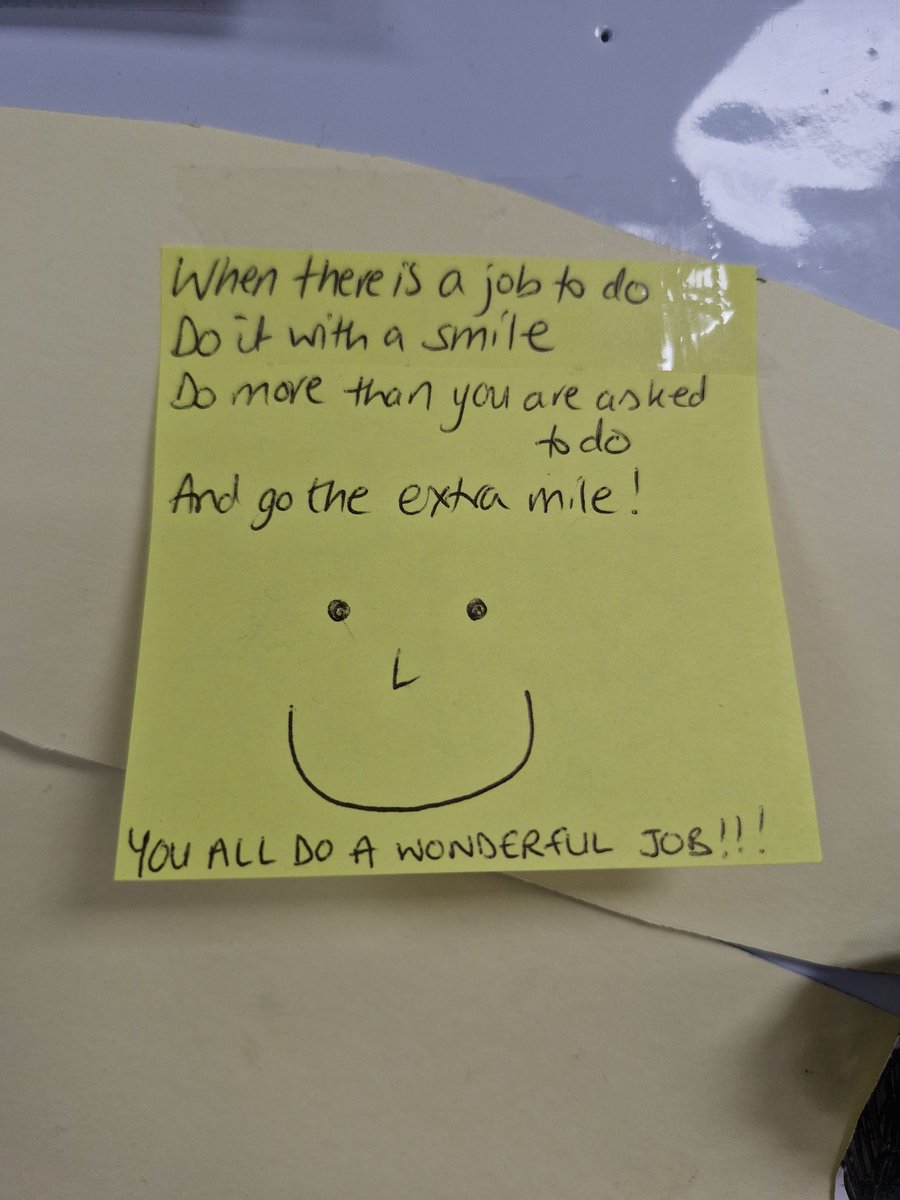 When there is a job to do
Do it with a smile
Do more than you are asked
to do
And go the extra mile!
YOU ALL DO A WONDERFUL JOB!!!